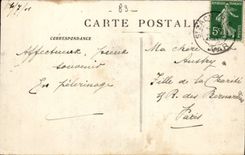 83
CARTE POSTALE
CORRESPONDANCE
Affectueux, pieux
souvenir
en pélerinage
Ma chère
Fille de la Charité
R. des Bernardins
Paris
5c
VAR